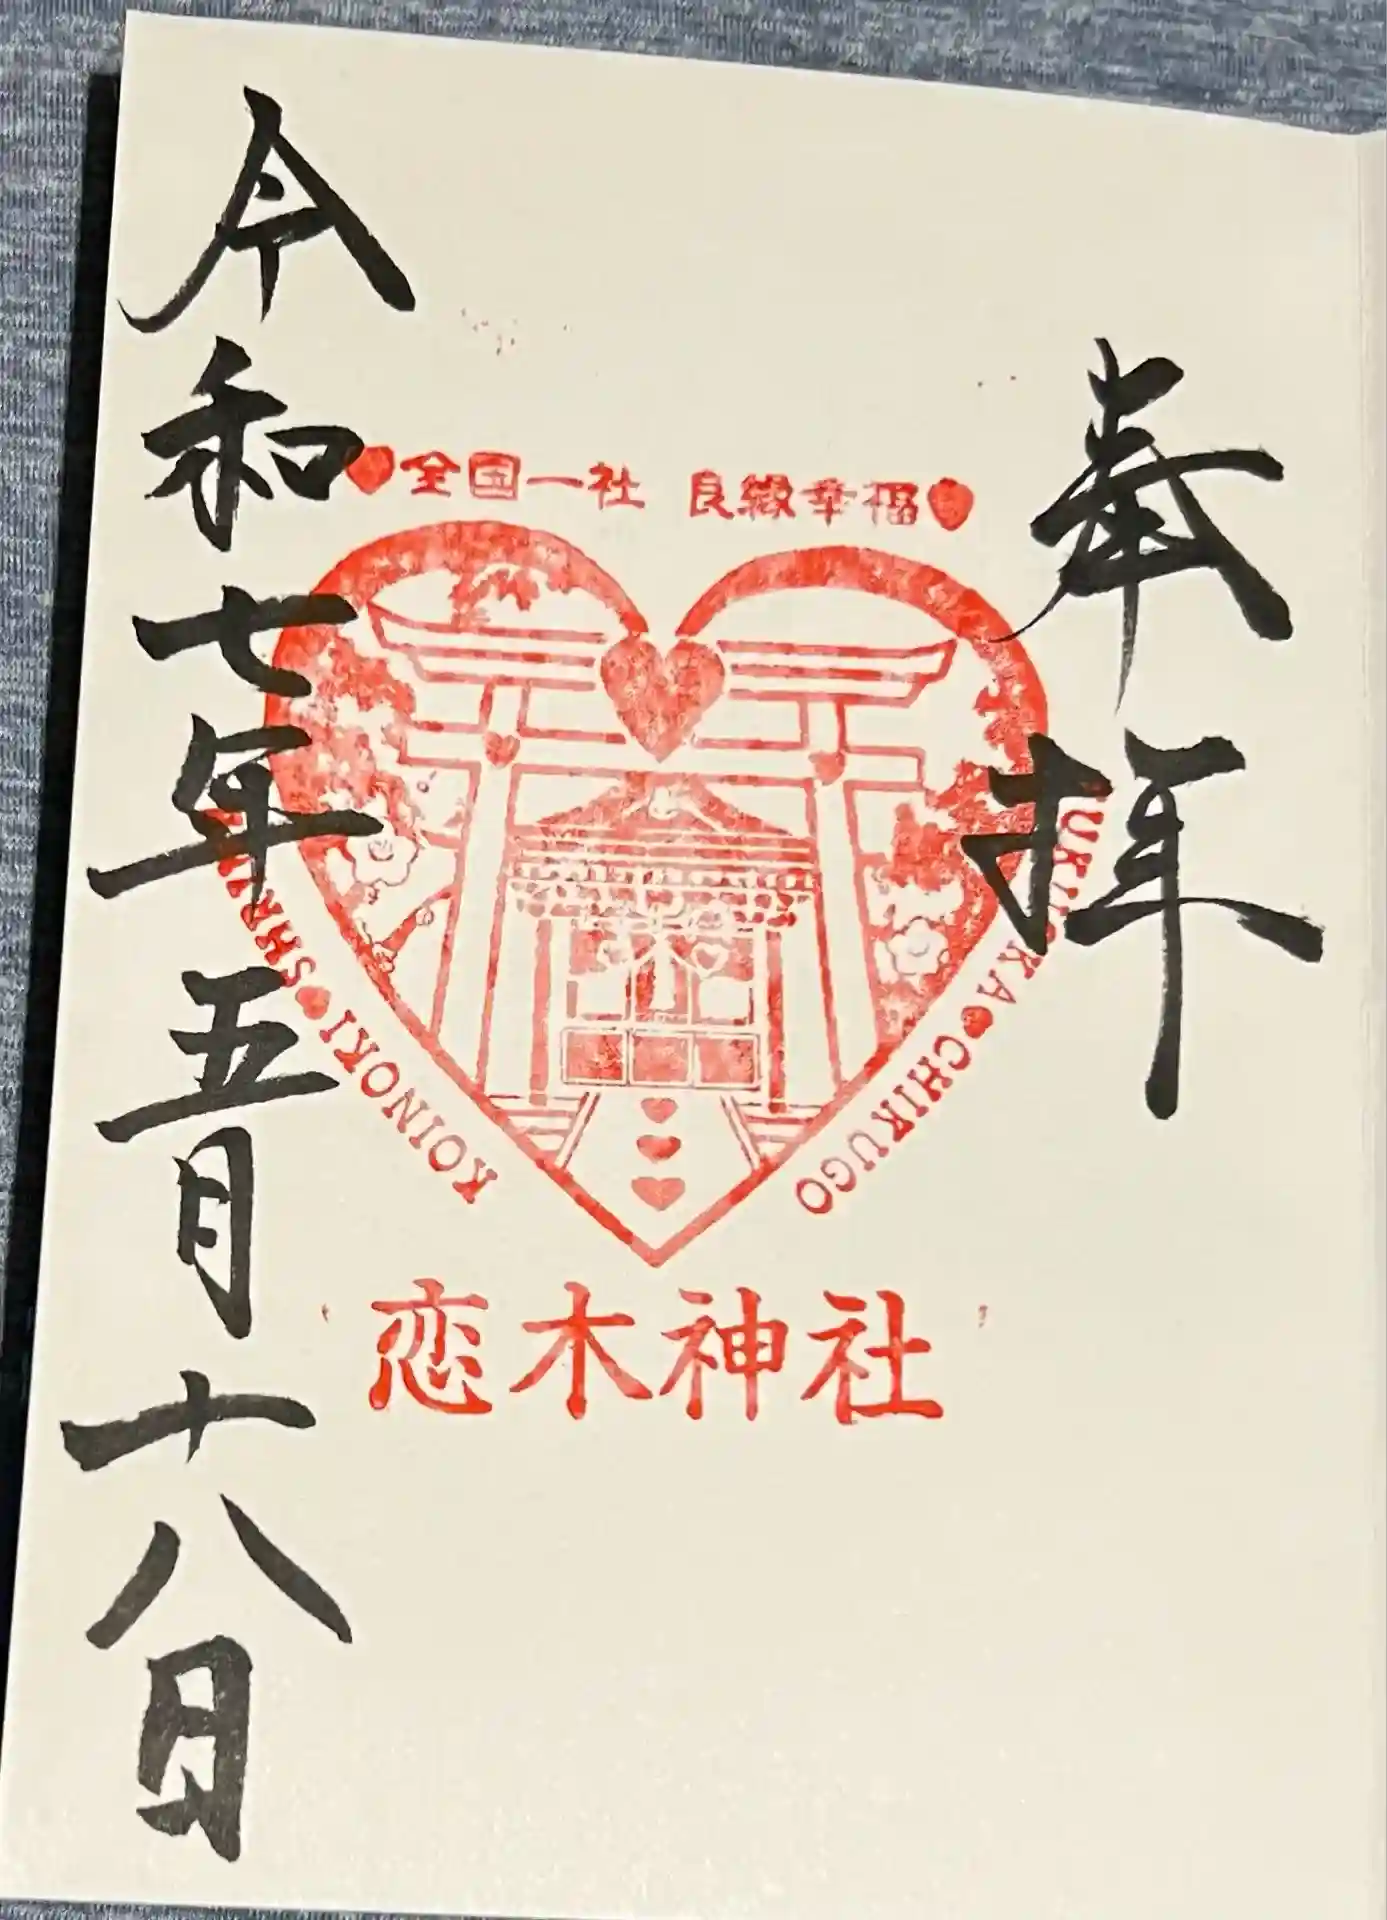 奉拝
全国一社 良縁幸福
KOINOKI SHRINE
FUKUOKA CHIKUGO
恋木神社
令和七年五月十八日